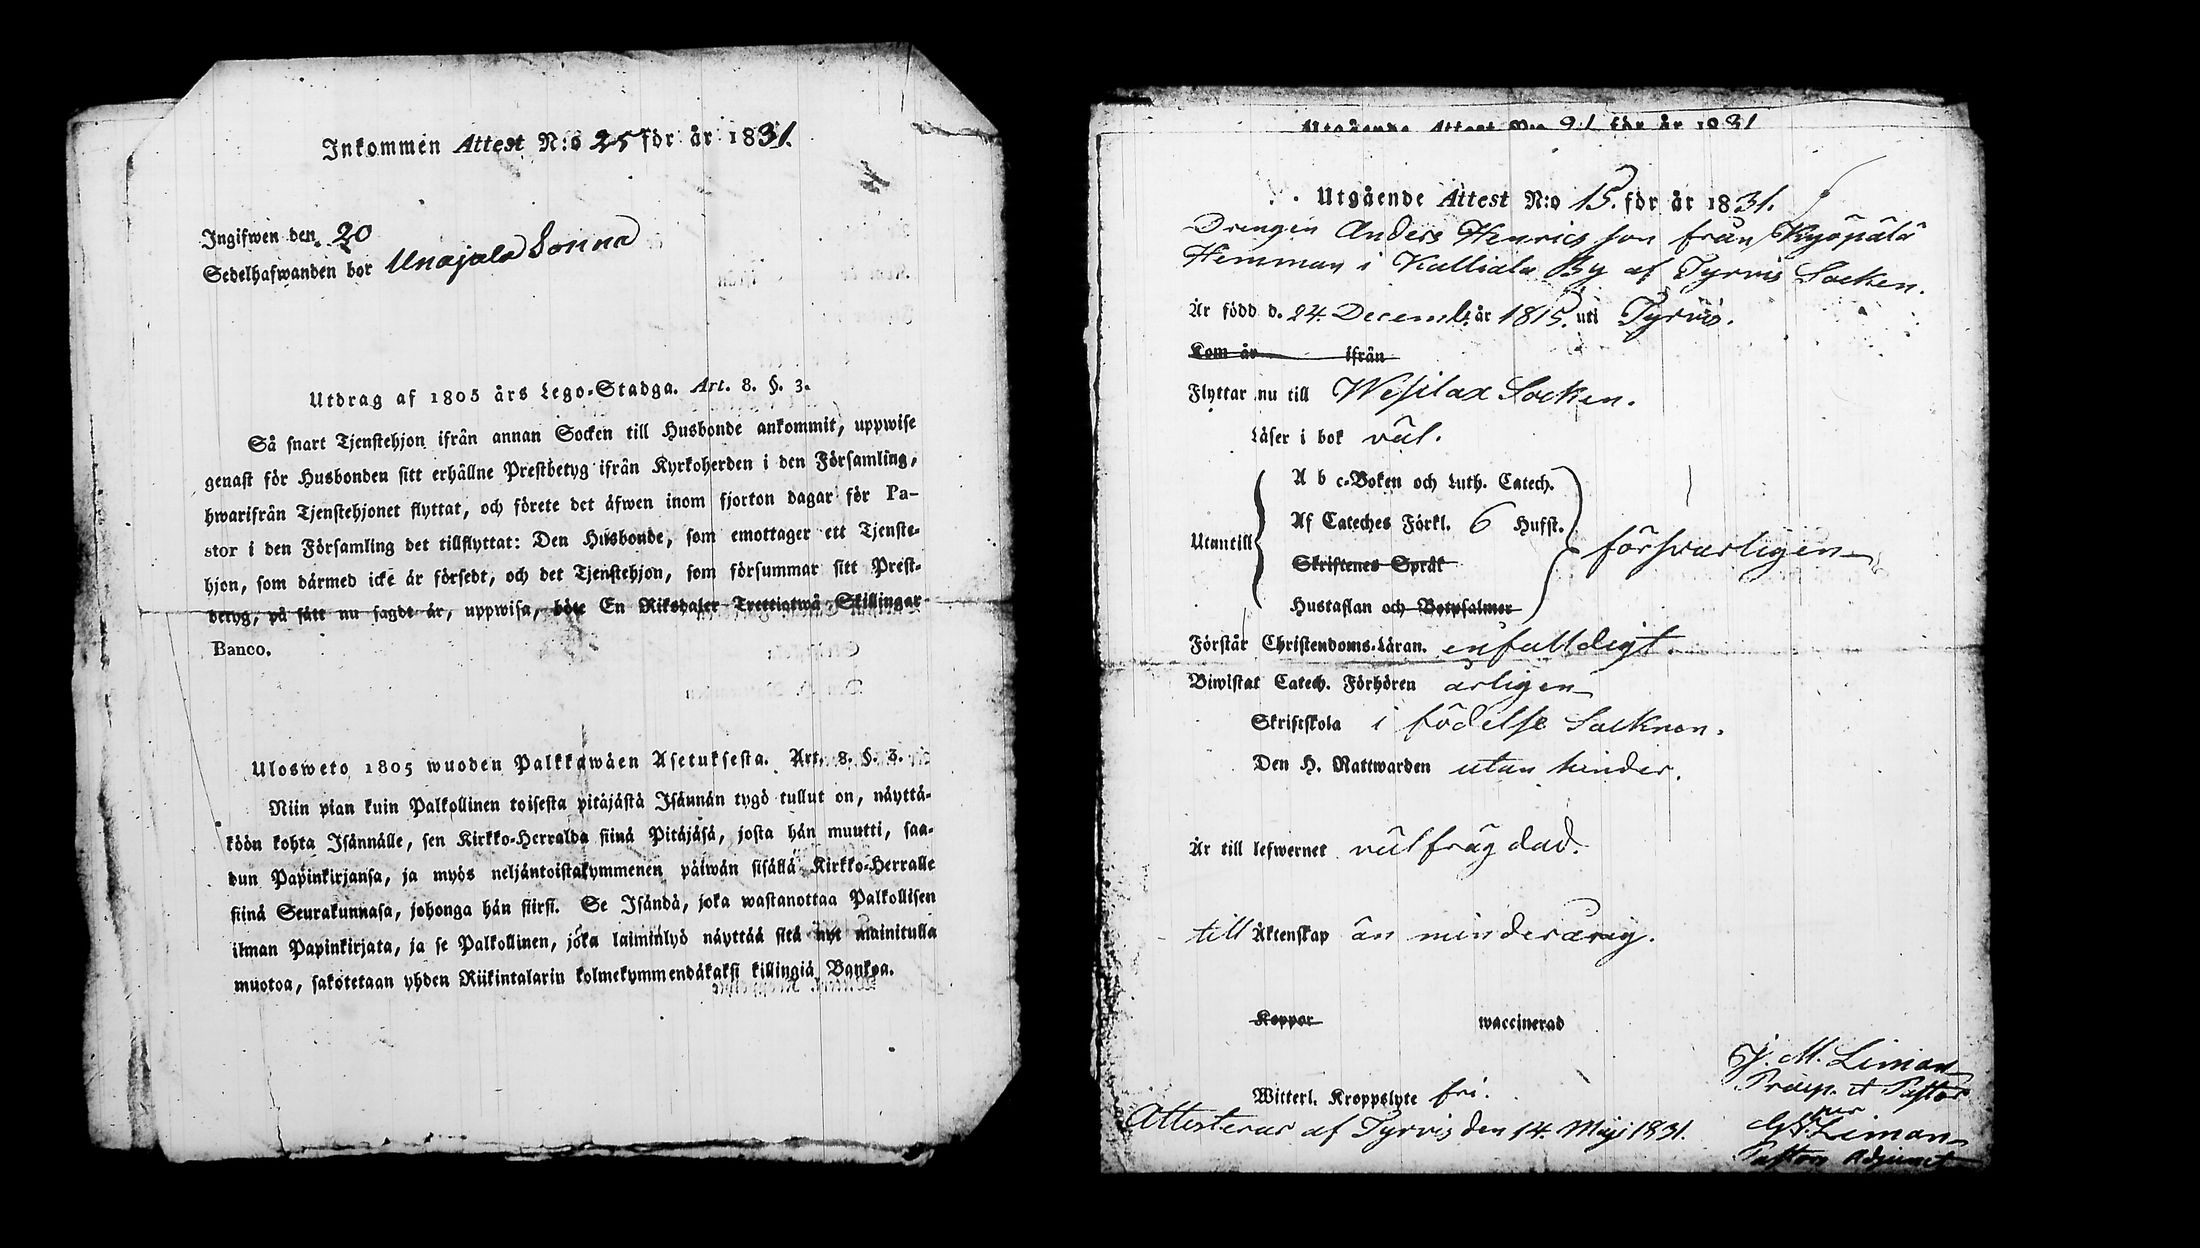 Inkommen Attest N:o 25 för år 1831.
Ingifwen den 20
Sedelhafwanden bor Unajala Sonna
Utdrag af 1805 års Lego-Stadga. Art. 8. §. 3.
Så snart Tjenstehjon ifrån annan Socken till Husbonde ankommit, uppwise
genast för Husbonden sitt erhållne Prestbetyg ifrån Kyrkoherden i den Församling,
hwarifrån Tjenstehjonet flyttat, och förete det äfwen inom fjorton dagar för Pa-
stor i den Församling det tillflyttat: Den Husbonde, som emottager ett Tjenste-
hjon, som därmed icke är försedt, och det Tjenstehjon, som försummar sitt Prest-
betyg, på sätt nu sagdt är, uppwisa, böte En Riksdaler Trettiotwå Skillingar
Banco.
Ulosweto 1805 wuoden Palkkawäen Asetuksesta. Art. 8. §. 3.
Niin pian kuin Palkollinen toisesta pitäjästä Isännän tygö tullut on, näyttä-
köön kohta Isännälle, sen Kirkko-Herralda siinä Pitäjäsä, josta hän muutti, saa-
dun Papinkirjansa, ja myös neljäntoistakymmenen päiwän sisällä Kirkko-Herralle
siinä Seurakunnasa, johonga hän siirsi. Se Isändä, joka wastanottaa Palkollisen
ilman Papinkirjata, ja se Palkollinen, joka laiminlyö näyttää sitä nyt mainitulla
muotoa, sakotetaan yhden Riikintalarin kolmekymmendäkaksi killingiä Bankoa.
Utgående Attest N:o 21 för år 1831
Utgående Attest N:o 15. för år 1831.
Drengen Anders Henrics son från Kyöpälä
Hemman i Kalliala By af Tyrvis Socken.
Är född d. 24. Decemb. år 1815. uti Tyrvis.
Kom år ifrån
Flyttar nu till Wesilax Socken.
Läser i bok väl.
A b c-Boken och Luth. Catech.
Af Cateches Förkl. 6 Hufst.
Utantill försvarligen
Skriftenes Språk
Hustaflan och Botpsalmer
Förstår Christendoms-Läran. enfalldigt.
Biwistat Catech. Förhören årligen
Skriftskola i födelse Socknen.
Den H. Nattwarden utan hinder.
Är till lefwernet välfrägdad.
till Äktenskap än minderårig.
Koppor waccinerad
Witterl. Kroppslyte fri.
Attesterar af Tyrvis den 14. Maji 1831.
J. M. Liman
Præp. et Pastor
per
G Liman
Pastors Adjunct